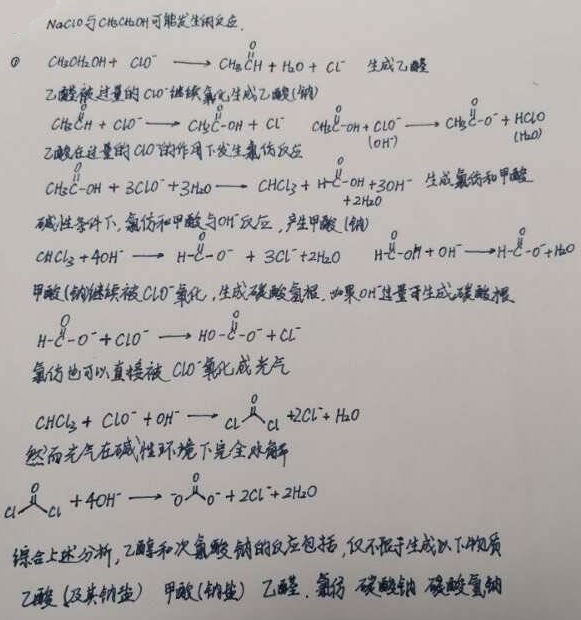 NaClO与CH3CH2OH可能发生的反应
① CH3CH2OH + ClO⁻ → CH3CH + H2O + Cl⁻ 生成乙醛
O
乙醛被过量的ClO⁻继续氧化生成乙酸(钠)
O O O O
CH3CH + ClO⁻ → CH3C-OH + Cl⁻ CH3C-OH + ClO⁻ → CH3C-O⁻ + HClO
(OH⁻) (H2O)
乙酸在过量的ClO⁻的作用下发生氯仿反应
O O
CH3C-OH + 3ClO⁻ + 3H2O → CHCl3 + H-C-OH + 3OH⁻ 生成氯仿和甲酸
+ 2H2O
碱性条件下,氯仿和甲酸与OH⁻反应,产生甲酸(钠)
O O O
CHCl3 + 4OH⁻ → H-C-O⁻ + 3Cl⁻ + 2H2O H-C-OH + OH⁻ → H-C-O⁻ + H2O
甲酸(钠)继续被ClO⁻氧化,生成碳酸氢根.如果OH⁻过量可生成碳酸根
O O
H-C-O⁻ + ClO⁻ → HO-C-O⁻ + Cl⁻
氯仿也可以直接被ClO⁻氧化成光气
O
CHCl3 + ClO⁻ + OH⁻ → Cl Cl + 2Cl⁻ + H2O
然而光气在碱性环境下完全水解
O O
Cl Cl + 4OH⁻ → ⁻O O⁻ + 2Cl⁻ + 2H2O
综合上述分析,乙醇和次氯酸钠的反应包括,仅不限于生成以下物质
乙酸(及其钠盐) 甲酸(钠盐) 乙醛.氯仿 碳酸钠 碳酸氢钠